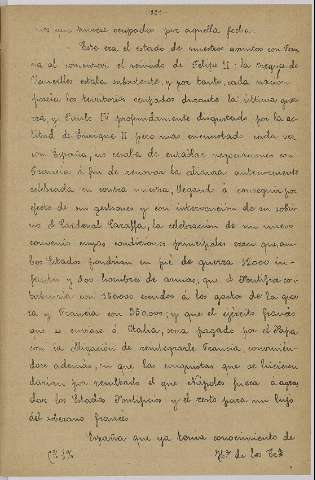 121
nos aun fuesen ocupados por aquella fecha.
Este era el estado de nuestros asuntos con Fran
cia al comenzar el reinado de Felipe II: la tregua de
Vaucelles estaba subsistente, y por tanto, cada nación
poseía los territorios ocupados durante la última gue
rra, y Paulo IV profundamente disgustado por la ac
titud de Enrique II pero mas enemistado cada vez
con España, no cesaba de entablar negociaciones con
Francia á fin de renovar la alianza anteriormente
celebrada en contra nuestra, llegando á conseguir por
efecto de sus gestiones y con intervención de su sobri
no el Cardenal Caraffa, la celebración de un nuevo
convenio cuyas condiciones principales eran que am
bos Estados pondrían en pié de guerra 12000 in-
fantes y 800 hombres de armas, que el Pontífice con
tribuiría con 150000 escudos á los gastos de la gue
rra y Francia con 350000; y que el ejército francés
que se enviase á Italia, sería pagado por el Papa
con la obligación de reintegrarle Francia convinién
dose además, en que las conquistas que se hicieran
darían por resultado el que Nápoles fuera a agre
dar los Estados Pontificios y el resto para un hijo
del soberano francés.
España que ya tenía conocimiento de
de los